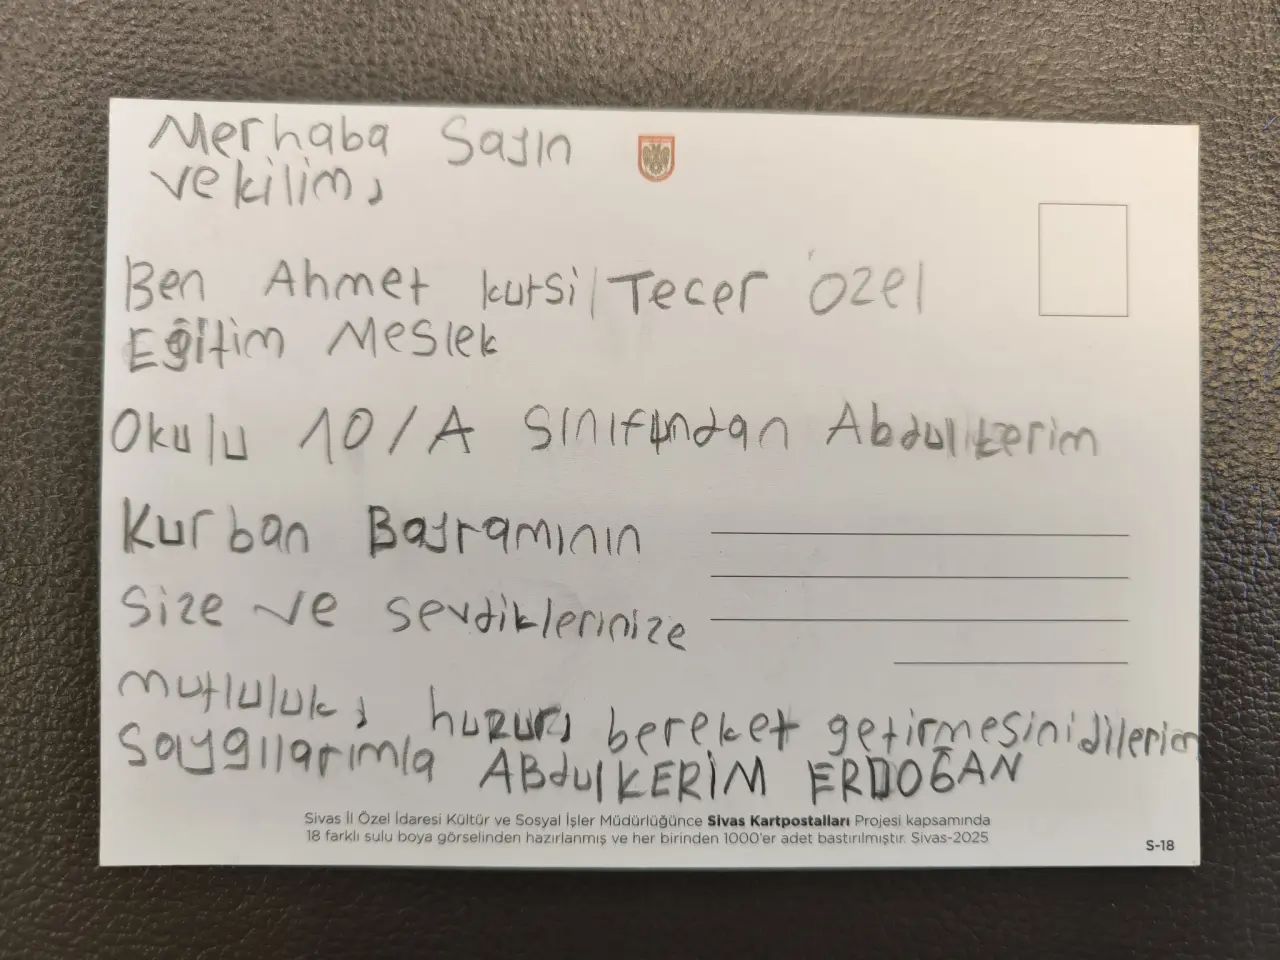 Merhaba Sayın
vekilim,
Ben Ahmet kutsi Tecer özel
Eğitim Meslek
Okulu 10/A sınıfından Abdulkerim
Kurban Bayramının
size ve sevdiklerinize
mutluluk, huzur, bereket getirmesini dilerim
Saygılarımla ABdulKERİM ERDOĞAN
Sivas İl Özel İdaresi Kültür ve Sosyal İşler Müdürlüğünce Sivas Kartpostalları Projesi kapsamında
18 farklı sulu boya görselinden hazırlanmış ve her birinden 1000'er adet bastırılmıştır. Sivas-2025
S-18